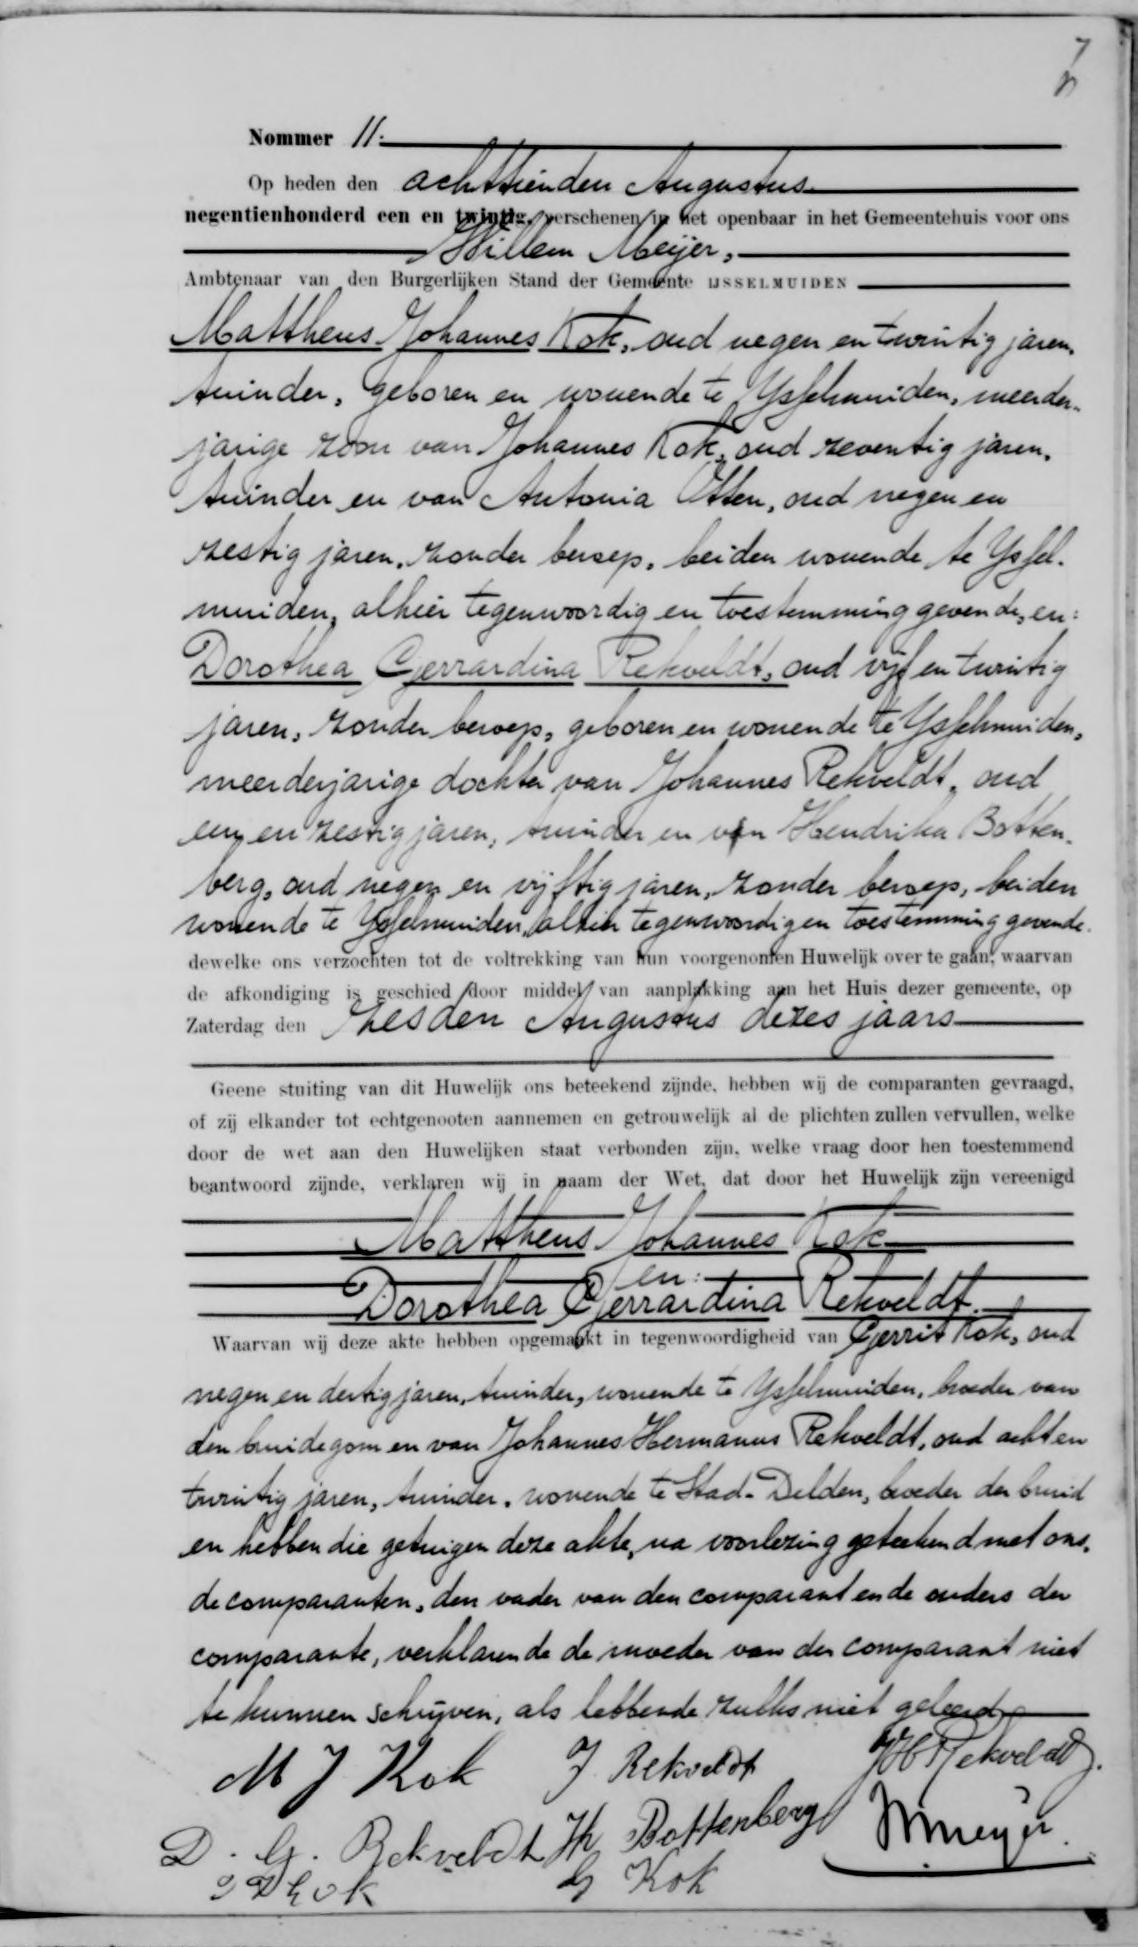 7
Nommer 11.
Op heden den achttienden Augustus
negentienhonderd een en twintig, verschenen in het openbaar in het Gemeentehuis voor ons
Willem Meijer,
Ambtenaar van den Burgerlijken Stand der Gemeente IJSSELMUIDEN
Mattheus Johannes Kok, oud negen en twintig jaren,
tuinder, geboren en wonende te Ysselmuiden, meerder-
jarige zoon van Johannes Kok, oud zeventig jaren,
tuinder en van Antonia Otten, oud negen en
zestig jaren, zonder beroep, beiden wonende te Yssel-
muiden, alhier tegenwoordig en toestemming gevende, en:
Dorothea Gerrardina Rekveldt, oud vijf en twintig
jaren, zonder beroep, geboren en wonende te Ysselmuiden,
meerderjarige dochter van Johannes Rekveldt, oud
een en zestig jaren, tuinder en van Hendrika Botten-
berg, oud negen en vijftig jaren, zonder beroep, beiden
wonende te Ysselmuiden, alhier tegenwoordig en toestemming gevende.
dewelke ons verzochten tot de voltrekking van hun voorgenomen Huwelijk over te gaan, waarvan
de afkondiging is geschied door middel van aanplakking aan het Huis dezer gemeente, op
Zaterdag den zesden Augustus dezes jaars
Geene stuiting van dit Huwelijk ons beteekend zijnde, hebben wij de comparanten gevraagd,
of zij elkander tot echtgenooten aannemen en getrouwelijk al de plichten zullen vervullen, welke
door de wet aan den Huwelijken staat verbonden zijn, welke vraag door hen toestemmend
beantwoord zijnde, verklaren wij in naam der Wet, dat door het Huwelijk zijn vereenigd
Mattheus Johannes Kok
en:
Dorothea Gerrardina Rekveldt.
Waarvan wij deze akte hebben opgemaakt in tegenwoordigheid van Gerrit Kok, oud
negen en dertig jaren, tuinder, wonende te Ysselmuiden, broeder van
den bruidegom en van Johannes Hermanus Rekveldt, oud acht en
twintig jaren, tuinder, wonende te Stad-Delden, broeder der bruid
en hebben die getuigen deze akte, na voorlezing geteekend met ons,
de comparanten, den vader van den comparant en de ouders der
comparante, verklarende de moeder van den comparant niet
te kunnen schrijven, als hebbende zulks niet geleerd.
M J Kok J. Rekveldt JH Rekveldt.
D. G. Rekveldt H Bottenberg WMeyer.
J Kok G Kok